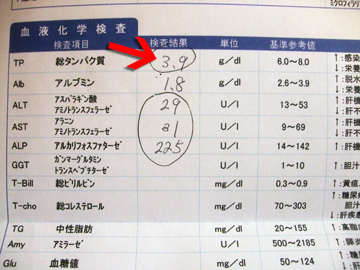 ミクロフィラリ
血液化学検査
検査項目 検査結果 単位 基準参考値
TP 総タンパク質 3.9 g/dl 6.0〜8.0
Alb アルブミン 1.8 g/dl 2.6〜3.9
ALT アスパラギン酸アミノトランスフェラーゼ 29 U/l 13〜53
AST アラニンアミノトランスフェラーゼ 21 U/l 9〜69
ALP アルカリフォスファターゼ 225 U/l 14〜142
GGT ガンマーグルタミルトランスペプチターゼ U/l 1〜10
T-Bill 総ビリルビン mg/dl 0.3〜0.9
T-cho 総コレステロール mg/dl 70〜303
TG 中性脂肪 mg/dl 20〜155
Amy アミラーゼ U/l 500〜2185
Glu 血糖値 mg/dl 50〜124